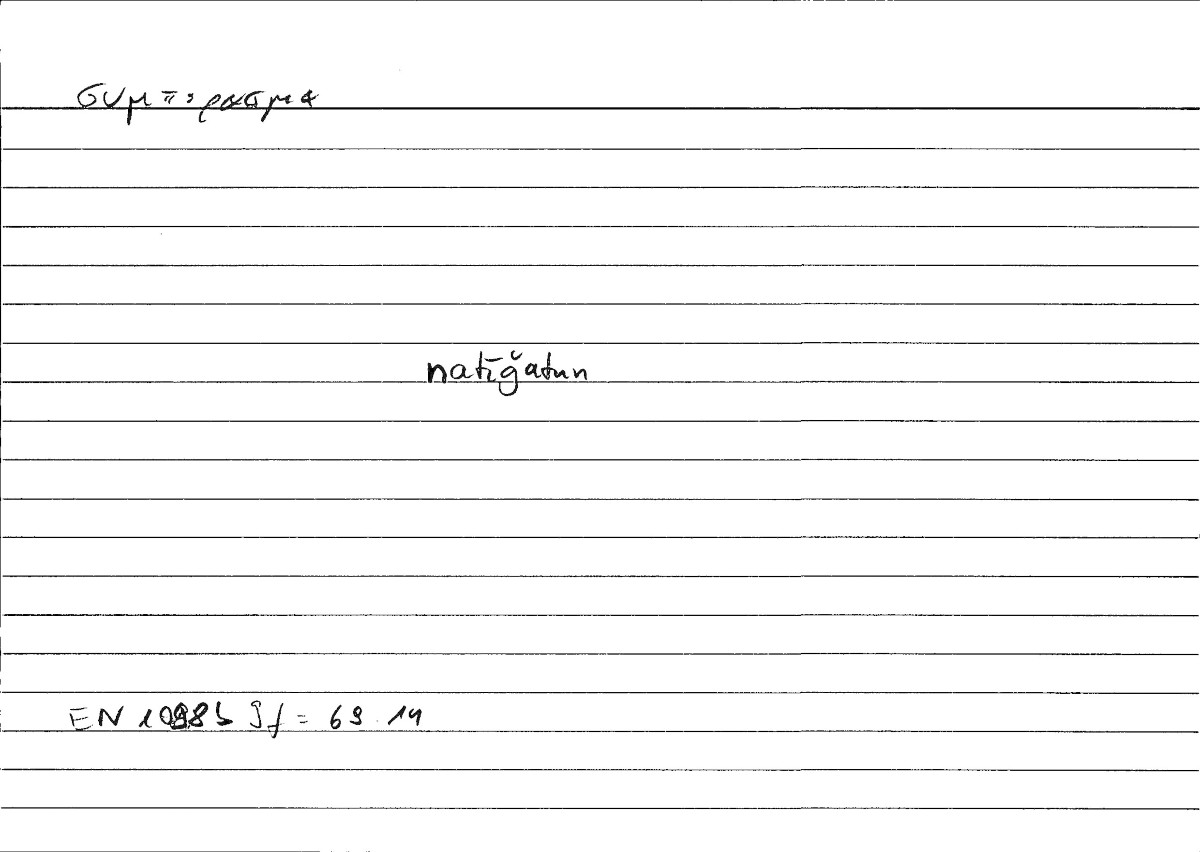 συμπέρασμα
natīǧatun
EN 1098b 9f = 69.14